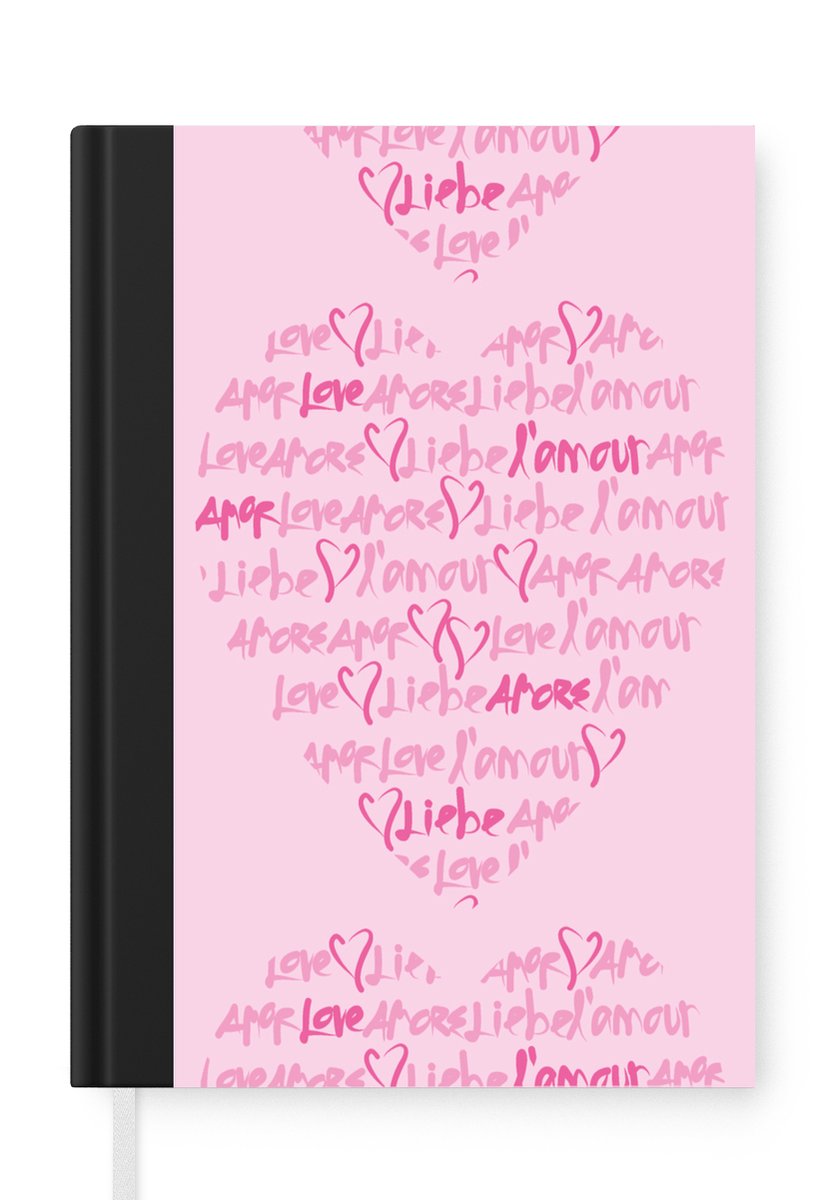 AMOR Love l'amour
Liebe AMO
Love l'
Love Lie
AMOR AMO
AMOR Love AMORE Liebe l'amour
Love AMORE Liebe l'amour AMOR
AMOR Love AMORE Liebe l'amour
Liebe l'amour AMOR AMORE
AMORE AMOR Love l'amour
Love Liebe AMORE l'am
AMOR Love l'amour
Liebe AMO
Love l'
Love Lie
AMOR AMO
AMOR Love AMORE Liebe l'amour
Love AMORE Liebe l'amour AMOR